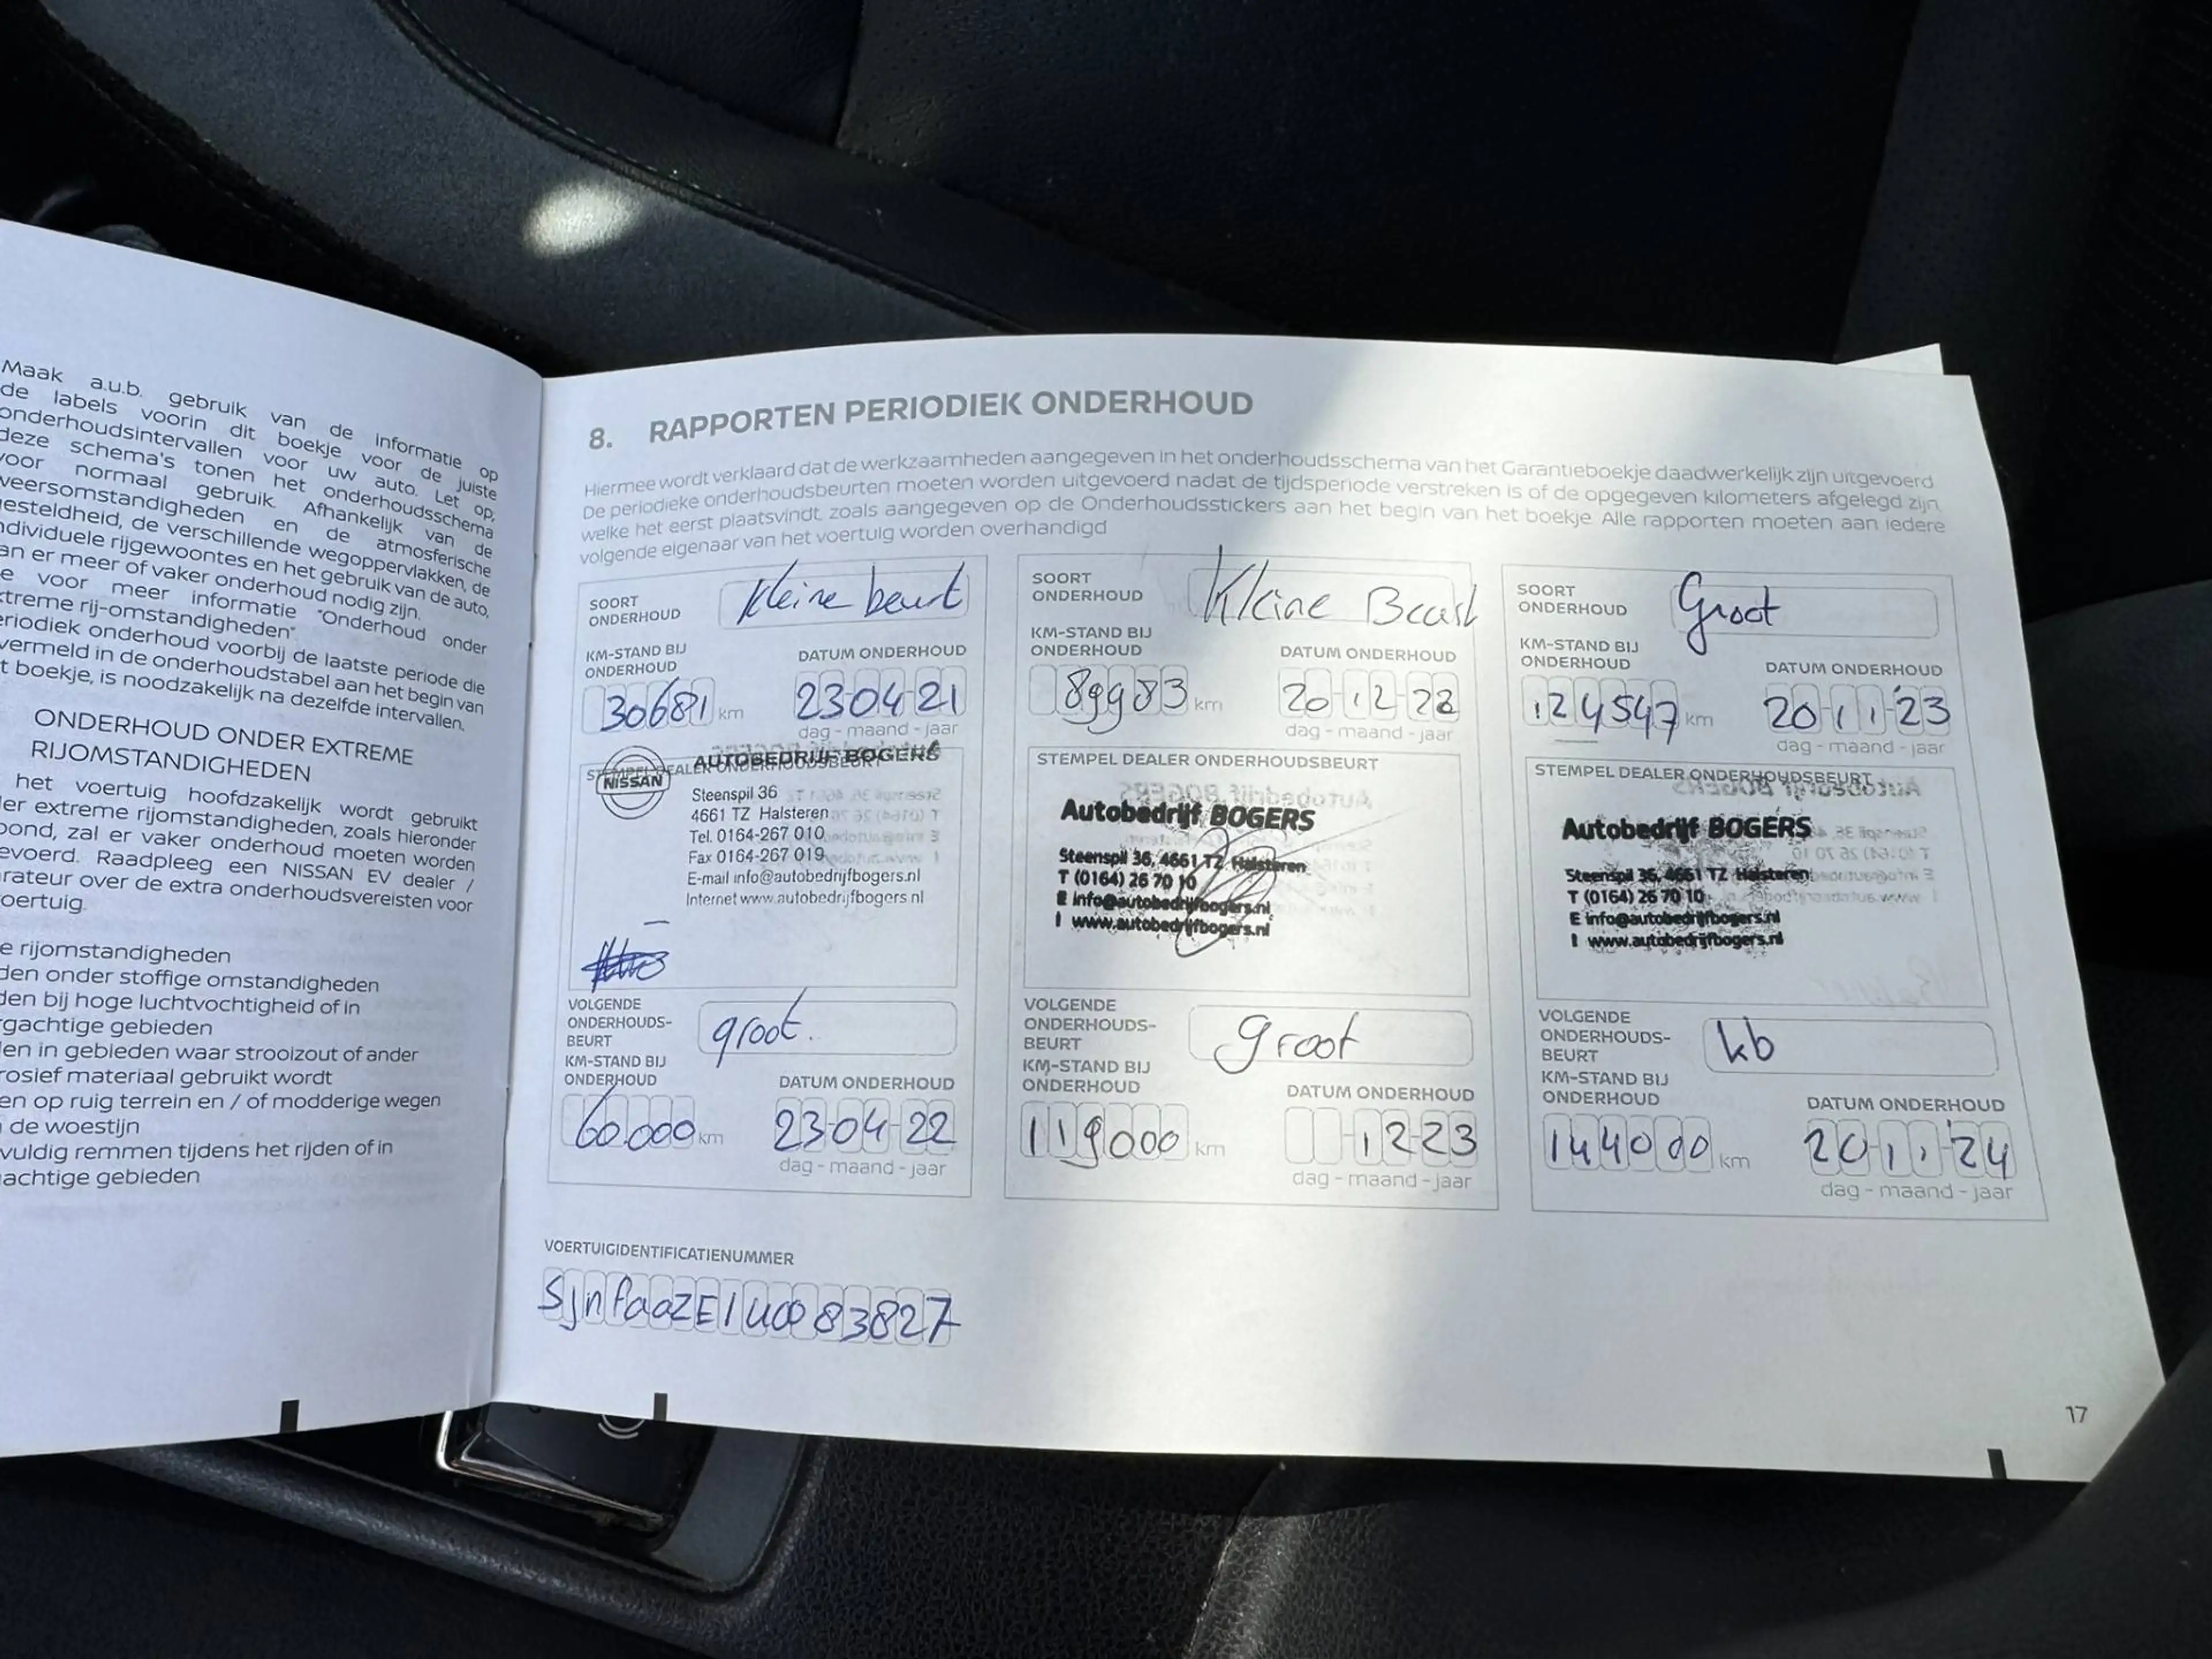 Maak a.u.b. gebruik van de informatie op
de labels voorin dit boekje voor de juiste
onderhoudsintervallen voor uw auto. Let op;
deze schema's tonen het onderhoudsschema
voor normaal gebruik. Afhankelijk van de
weersomstandigheden en de atmosferische
gesteldheid, de verschillende wegoppervlakken, de
individuele rijgewoontes en het gebruik van de auto,
an er meer of vaker onderhoud nodig zijn.
e voor meer informatie "Onderhoud onder
xtreme rij-omstandigheden".
eriodiek onderhoud voorbij de laatste periode die
vermeld in de onderhoudstabel aan het begin van
t boekje, is noodzakelijk na dezelfde intervallen.
ONDERHOUD ONDER EXTREME
RIJOMSTANDIGHEDEN
het voertuig hoofdzakelijk wordt gebruikt
der extreme rijomstandigheden, zoals hieronder
oond, zal er vaker onderhoud moeten worden
evoerd. Raadpleeg een NISSAN EV dealer /
arateur over de extra onderhoudsvereisten voor
oertuig.
e rijomstandigheden
den onder stoffige omstandigheden
den bij hoge luchtvochtigheid of in
rgachtige gebieden
len in gebieden waar strooizout of ander
rosief materiaal gebruikt wordt
en op ruig terrein en / of modderige wegen
de woestijn
vuldig remmen tijdens het rijden of in
achtige gebieden
8. RAPPORTEN PERIODIEK ONDERHOUD
Hiermee wordt verklaard dat de werkzaamheden aangegeven in het onderhoudsschema van het Garantieboekje daadwerkelijk zijn uitgevoerd
De periodieke onderhoudsbeurten moeten worden uitgevoerd nadat de tijdsperiode verstreken is of de opgegeven kilometers afgelegd zijn,
welke het eerst plaatsvindt, zoals aangegeven op de Onderhoudsstickers aan het begin van het boekje. Alle rapporten moeten aan iedere
volgende eigenaar van het voertuig worden overhandigd
SOORT
ONDERHOUD
kleine beurt
KM-STAND BIJ
ONDERHOUD
DATUM ONDERHOUD
30681 km
23-04-21
dag - maand - jaar
STEMPEL DEALER ONDERHOUDSBEURT
NISSAN
AUTOBEDRIJF BOGERS
Steenspil 36
4661 TZ Halsteren
Tel. 0164-267 010
Fax 0164-267 019
E-mail info@autobedrijfbogers.nl
Internet www.autobedrijfbogers.nl
VOLGENDE
ONDERHOUDS-
BEURT
groot.
KM-STAND BIJ
ONDERHOUD
DATUM ONDERHOUD
60.000 km
23-04-22
dag - maand - jaar
SOORT
ONDERHOUD
Kleine Beurt
KM-STAND BIJ
ONDERHOUD
DATUM ONDERHOUD
89983 km
20-12-22
dag - maand - jaar
STEMPEL DEALER ONDERHOUDSBEURT
Autobedrijf BOGERS
Steenspil 36, 4661 TZ Halsteren
T (0164) 26 70 10
E info@autobedrijfbogers.nl
I www.autobedrijfbogers.nl
VOLGENDE
ONDERHOUDS-
BEURT
groot
KM-STAND BIJ
ONDERHOUD
DATUM ONDERHOUD
119000 km
12-23
dag - maand - jaar
SOORT
ONDERHOUD
Groot
KM-STAND BIJ
ONDERHOUD
DATUM ONDERHOUD
124547 km
20-11-'23
dag - maand - jaar
STEMPEL DEALER ONDERHOUDSBEURT
Autobedrijf BOGERS
Steenspil 36, 4661 TZ Halsteren
T (0164) 26 70 10
E info@autobedrijfbogers.nl
I www.autobedrijfbogers.nl
VOLGENDE
ONDERHOUDS-
BEURT
kb
KM-STAND BIJ
ONDERHOUD
DATUM ONDERHOUD
144000 km
20-11-'24
dag - maand - jaar
VOERTUIGIDENTIFICATIENUMMER
SjnfaaZE1U0083827
17